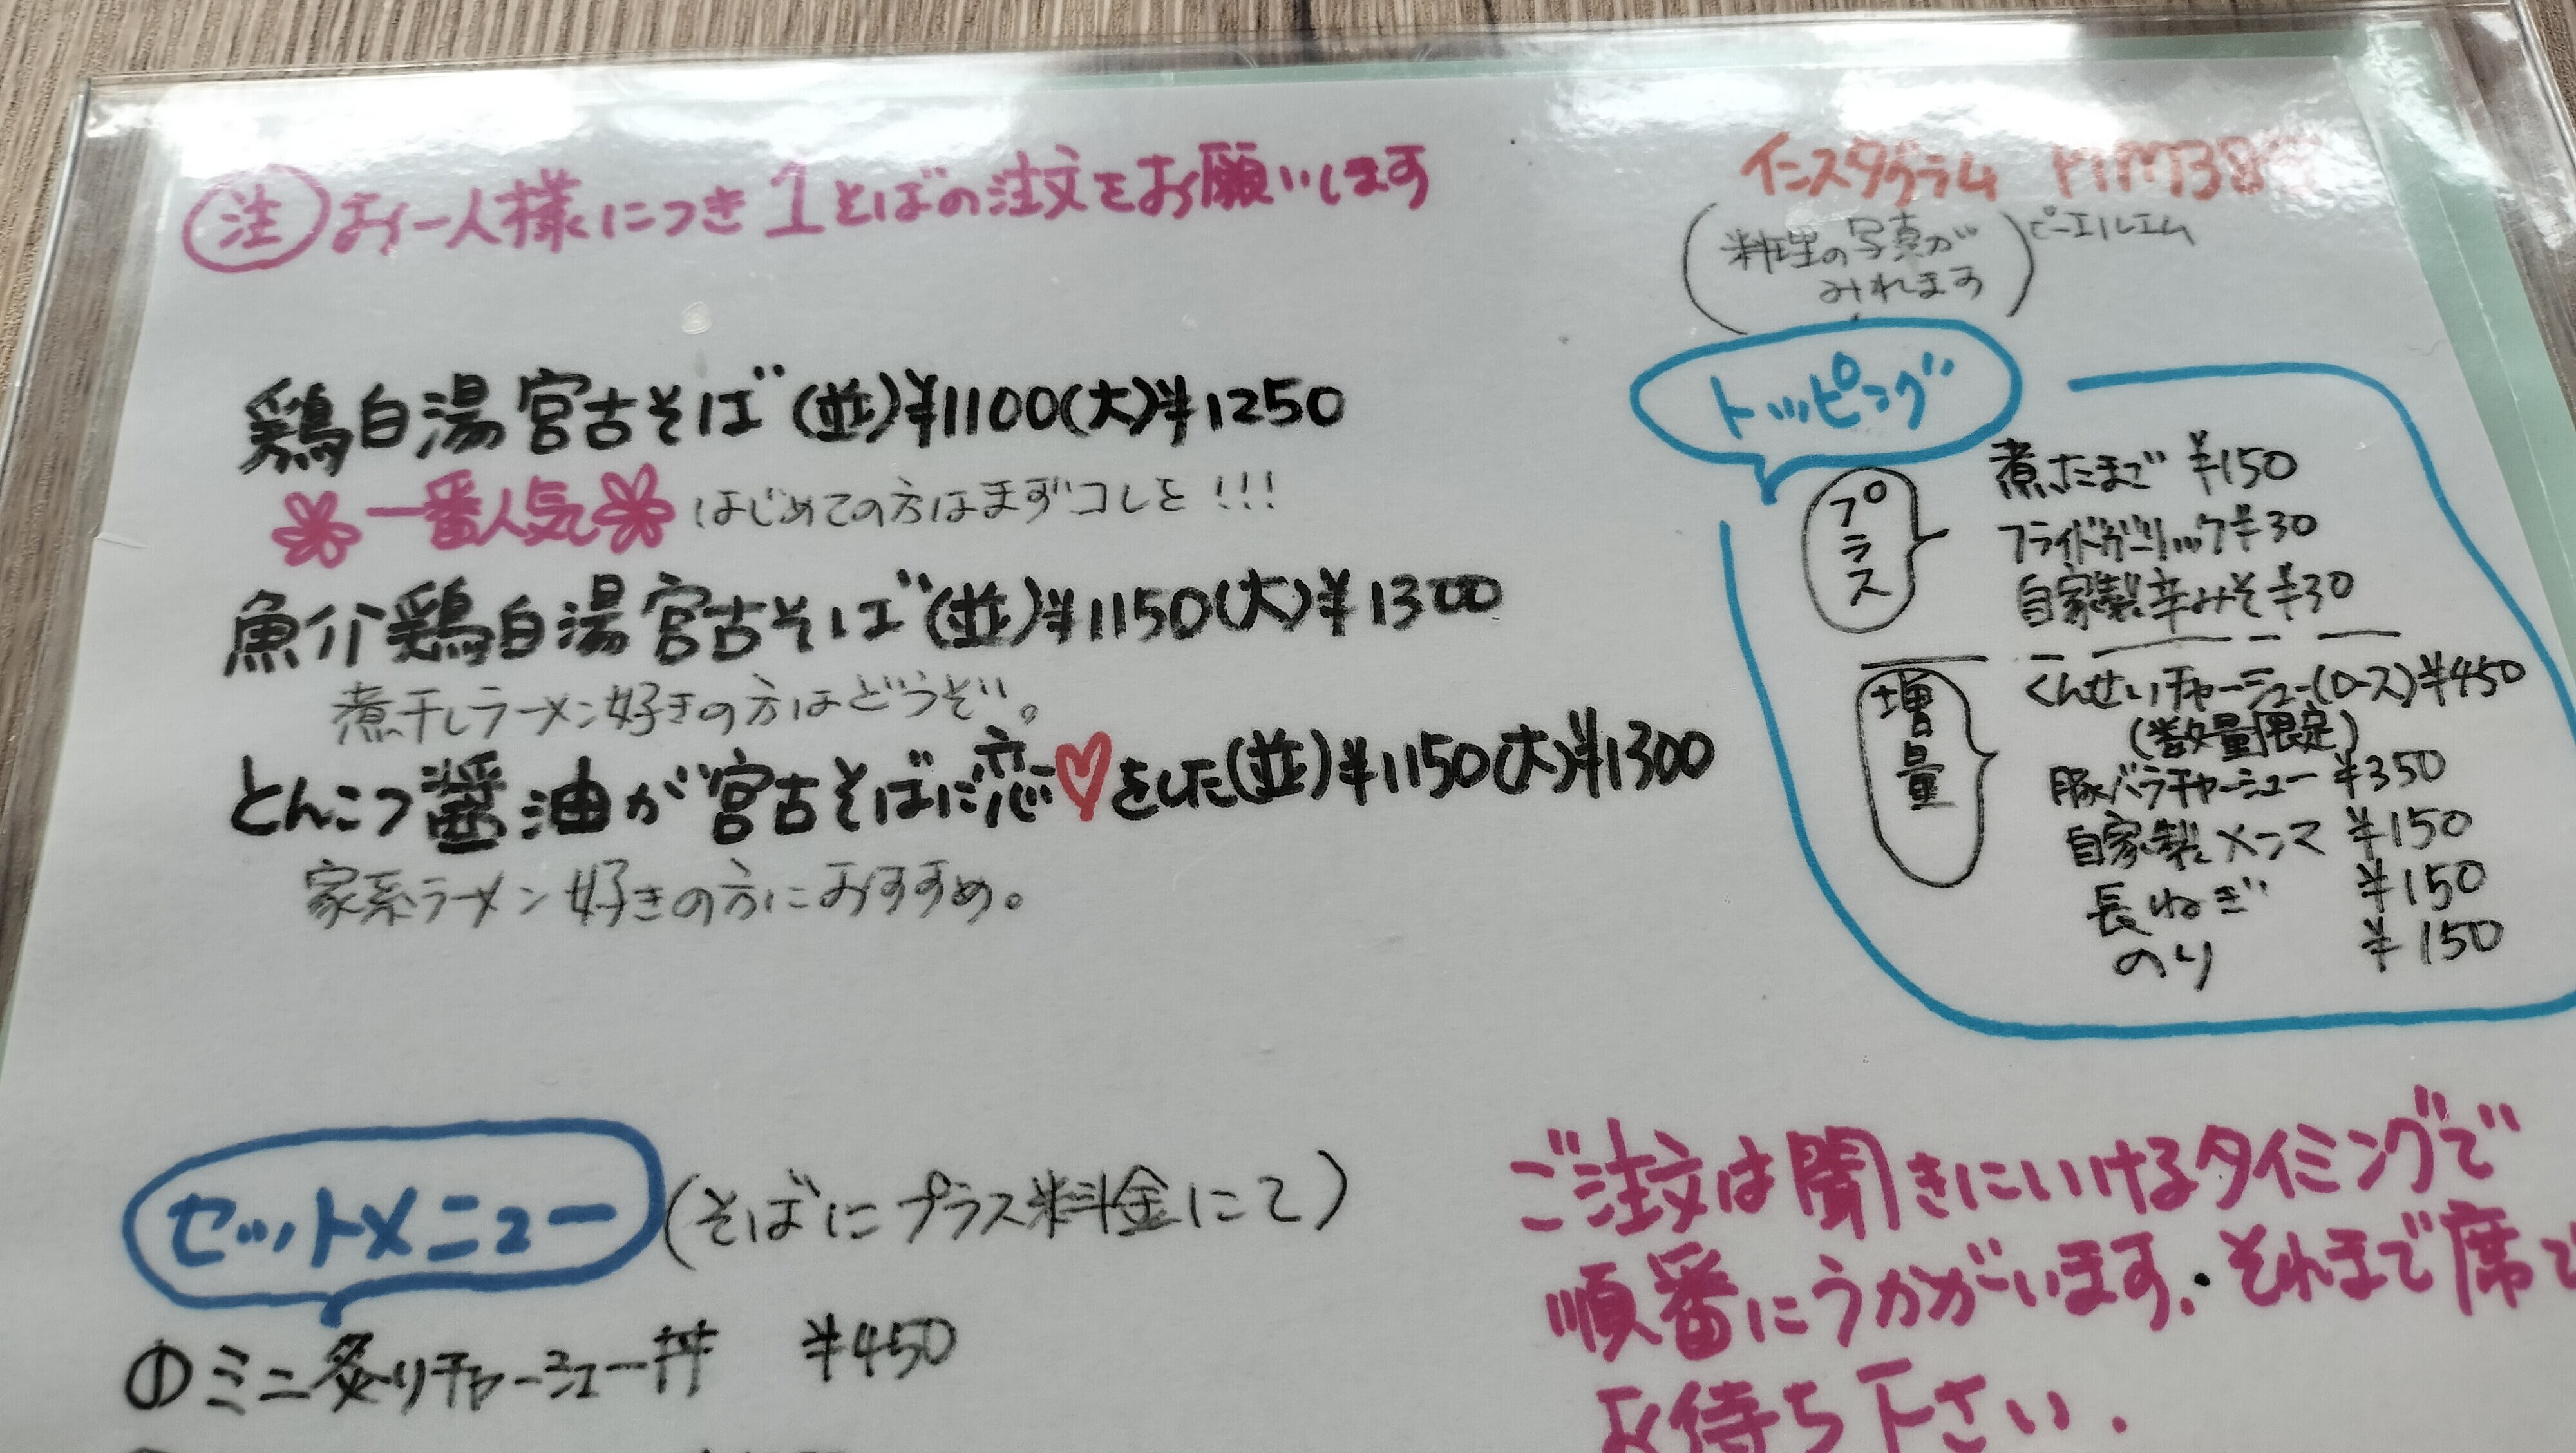 注 お一人様につき1そばの注文をお願いします
鶏白湯宮古そば (並)¥1100(大)¥1250
一番人気 はじめての方はまずコレを!!!
魚介鶏白湯宮古そば (並)¥1150(大)¥1300
煮干しラーメン好きの方はどうぞ。
とんこつ醤油が宮古そばに恋♡をした(並)¥1150(大)¥1300
家系ラーメン好きの方におすすめ。
インスタグラム
(料理の写真が
みれます)
ピーエルエム
トッピング
プラス
煮たまご ¥150
フライドガーリック¥30
自家製辛みそ¥30
増量
くんせいチャーシュー(ロース)¥450
(数量限定)
豚バラチャーシュー ¥350
自家製メンマ ¥150
長ねぎ ¥150
のり ¥150
セットメニュー (そばにプラス料金にて)
①ミニ炙りチャーシュー丼 ¥450
ご注文は聞きにいけるタイミングで
順番にうかがいます。それまで席で
お待ち下さい.